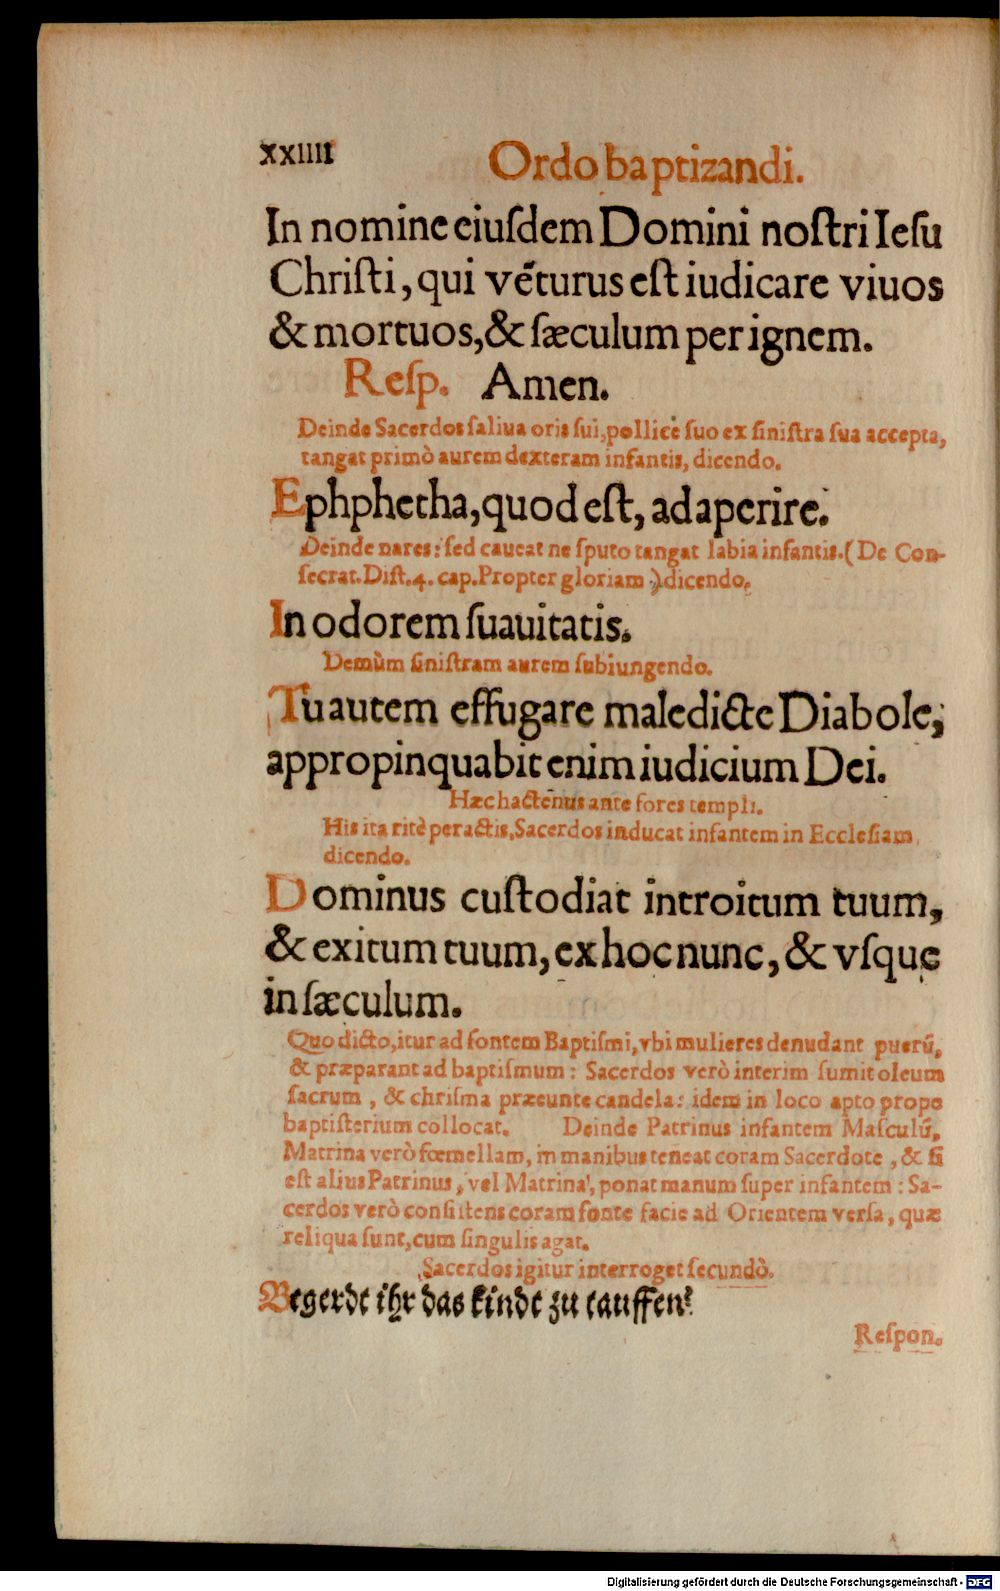 xxiiii
Ordo baptizandi.
In nomine eiusdem Domini nostri Iesu
Christi, qui vẽturus est iudicare viuos
& mortuos, & sæculum per ignem.
Resp. Amen.
Deinde Sacerdos saliua oris sui, pollice suo ex sinistra sua accepta,
tangat primò aurem dexteram infantis, dicendo.
Ephphetha, quod est, adaperire.
Deinde nares: sed caueat ne sputo tangat labia infantis. (De Con-
secrat. Dist. 4. cap. Propter gloriam) dicendo.
In odorem suauitatis.
Demùm sinistram aurem subiungendo.
Tu autem effugare maledicte Diabole,
appropinquabit enim iudicium Dei.
Hæc hactenus ante fores templi.
His ita ritè peractis, Sacerdos inducat infantem in Ecclesiam,
dicendo.
Dominus custodiat introitum tuum,
& exitum tuum, ex hoc nunc, & vsque
in sæculum.
Quo dicto, itur ad fontem Baptismi, vbi mulieres denudant puerũ,
& præparant ad baptismum: Sacerdos verò interim sumit oleum
sacrum, & chrisma præeunte candela: idem in loco apto prope
baptisterium collocat. Deinde Patrinus infantem Masculũ,
Matrina verò fœmellam, in manibus teneat coram Sacerdote, & si
est alius Patrinus, vel Matrina, ponat manum super infantem: Sa-
cerdos verò consistens coram fonte facie ad Orientem versa, quæ
reliqua sunt, cum singulis agat.
Sacerdos igitur interroget secundò.
Begerdt ihr das kindt zu tauffen?
Respon.
Digitalisierung gefördert durch die Deutsche Forschungsgemeinschaft - DFG